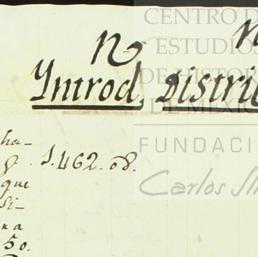 CENTRO D
ESTUDIO
DE HISTOR
DE MÉXIC
FUNDACI
Carlos Sl
Introd, Distri
ha-
1.462.08.
que
si-
na
50.